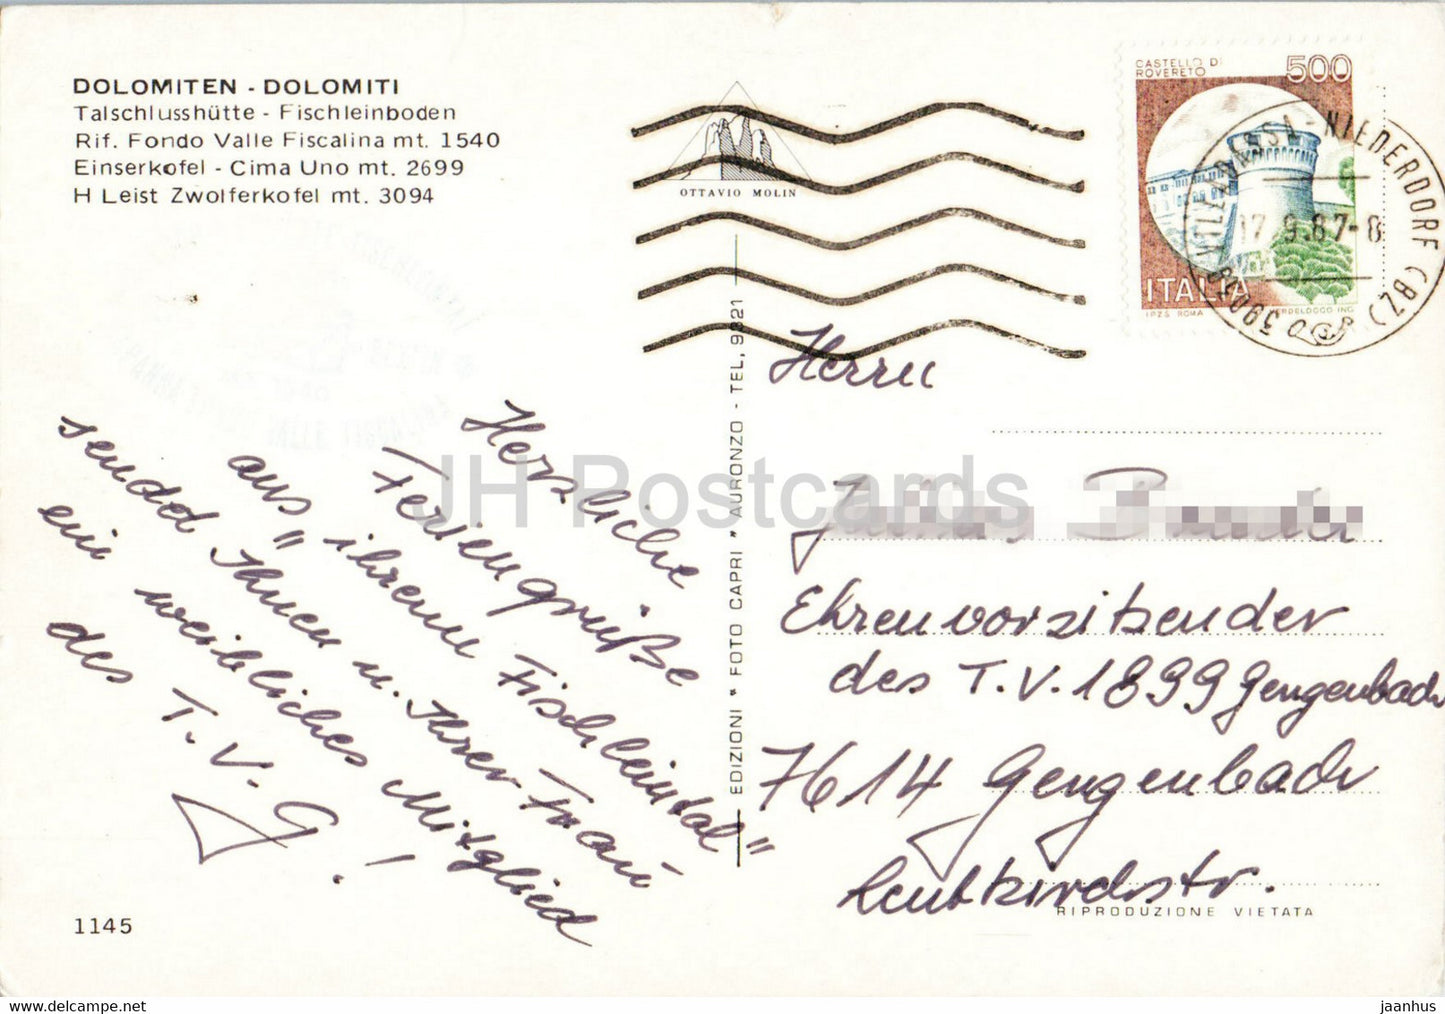 DOLOMITEN - DOLOMITI
Talschlusshütte - Fischleinboden
Rif. Fondo Valle Fiscalina mt. 1540
Einserkofel - Cima Uno mt. 2699
H Leist Zwolferkofel mt. 3094
OTTAVIO MOLIN
CASTELLO DI
ROVERETO
500
ITALIA
I.P.Z.S. ROMA
39039 VILLABASSA - NIEDERDORF (BZ)
17.9.87-8
Herzliche
Feriengrüße
aus "ihrem Fischleintal"
sendet Ihnen u. Ihrer Frau
ein weibliches Mitglied
des T.V.G!
1145
EDIZIONI * FOTO CAPRI * AURONZO - TEL. 9221
Herrn
Ehrenvorsitzender
des T.V. 1899 Gengenbach
7614 Gengenbach
Leutkirchstr.
RIPRODUZIONE VIETATA
JH Postcards
https://www.hippostcard.com
jaanhus